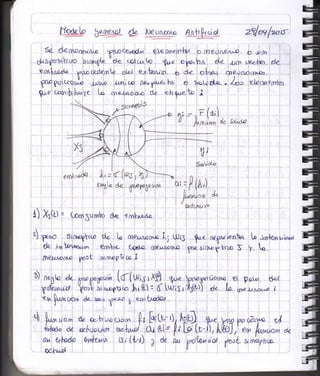 Modelo General de Neurona Artificial 25/04/2015
Se denomina procesador elemental o neurona a un
dispositivo simple de calculo que a partir de un vector de
entrada procedente del exterior o de otras neuronas
proporciona una unica respuesta o salida. Los elementos
que constituye la neurona de etiqueta i
sinapsis
yi = F(ai)
funcion de salida
Xj
yi
Salida
entrada hi = σ(wij, xj)
regla de propagacion ai = f(hi)
funcion de
activacion
1) Xj(t) = conjunto de entrada
2) peso sinaptico de la neurona i, wij que representa la intensidad
de interaccion entre cada neurona presinaptica j y la
neurona post sinaptica i
3) regla de propagacion (σ(wij, xj)) que proporciona el valor del
potencial postsinaptico hi(t) = σ(wij, xj(t)) de la neurona i
en funcion de sus pesos y entradas.
4) funcion de activacion fi[a(t-1), hi(t)] que proporciona el
estado de activacion actual ai(t) = fi[a(t-1), hi(t)], en funcion de
su estado anterior ai(t-1) y de su potencial post sinaptico
actual